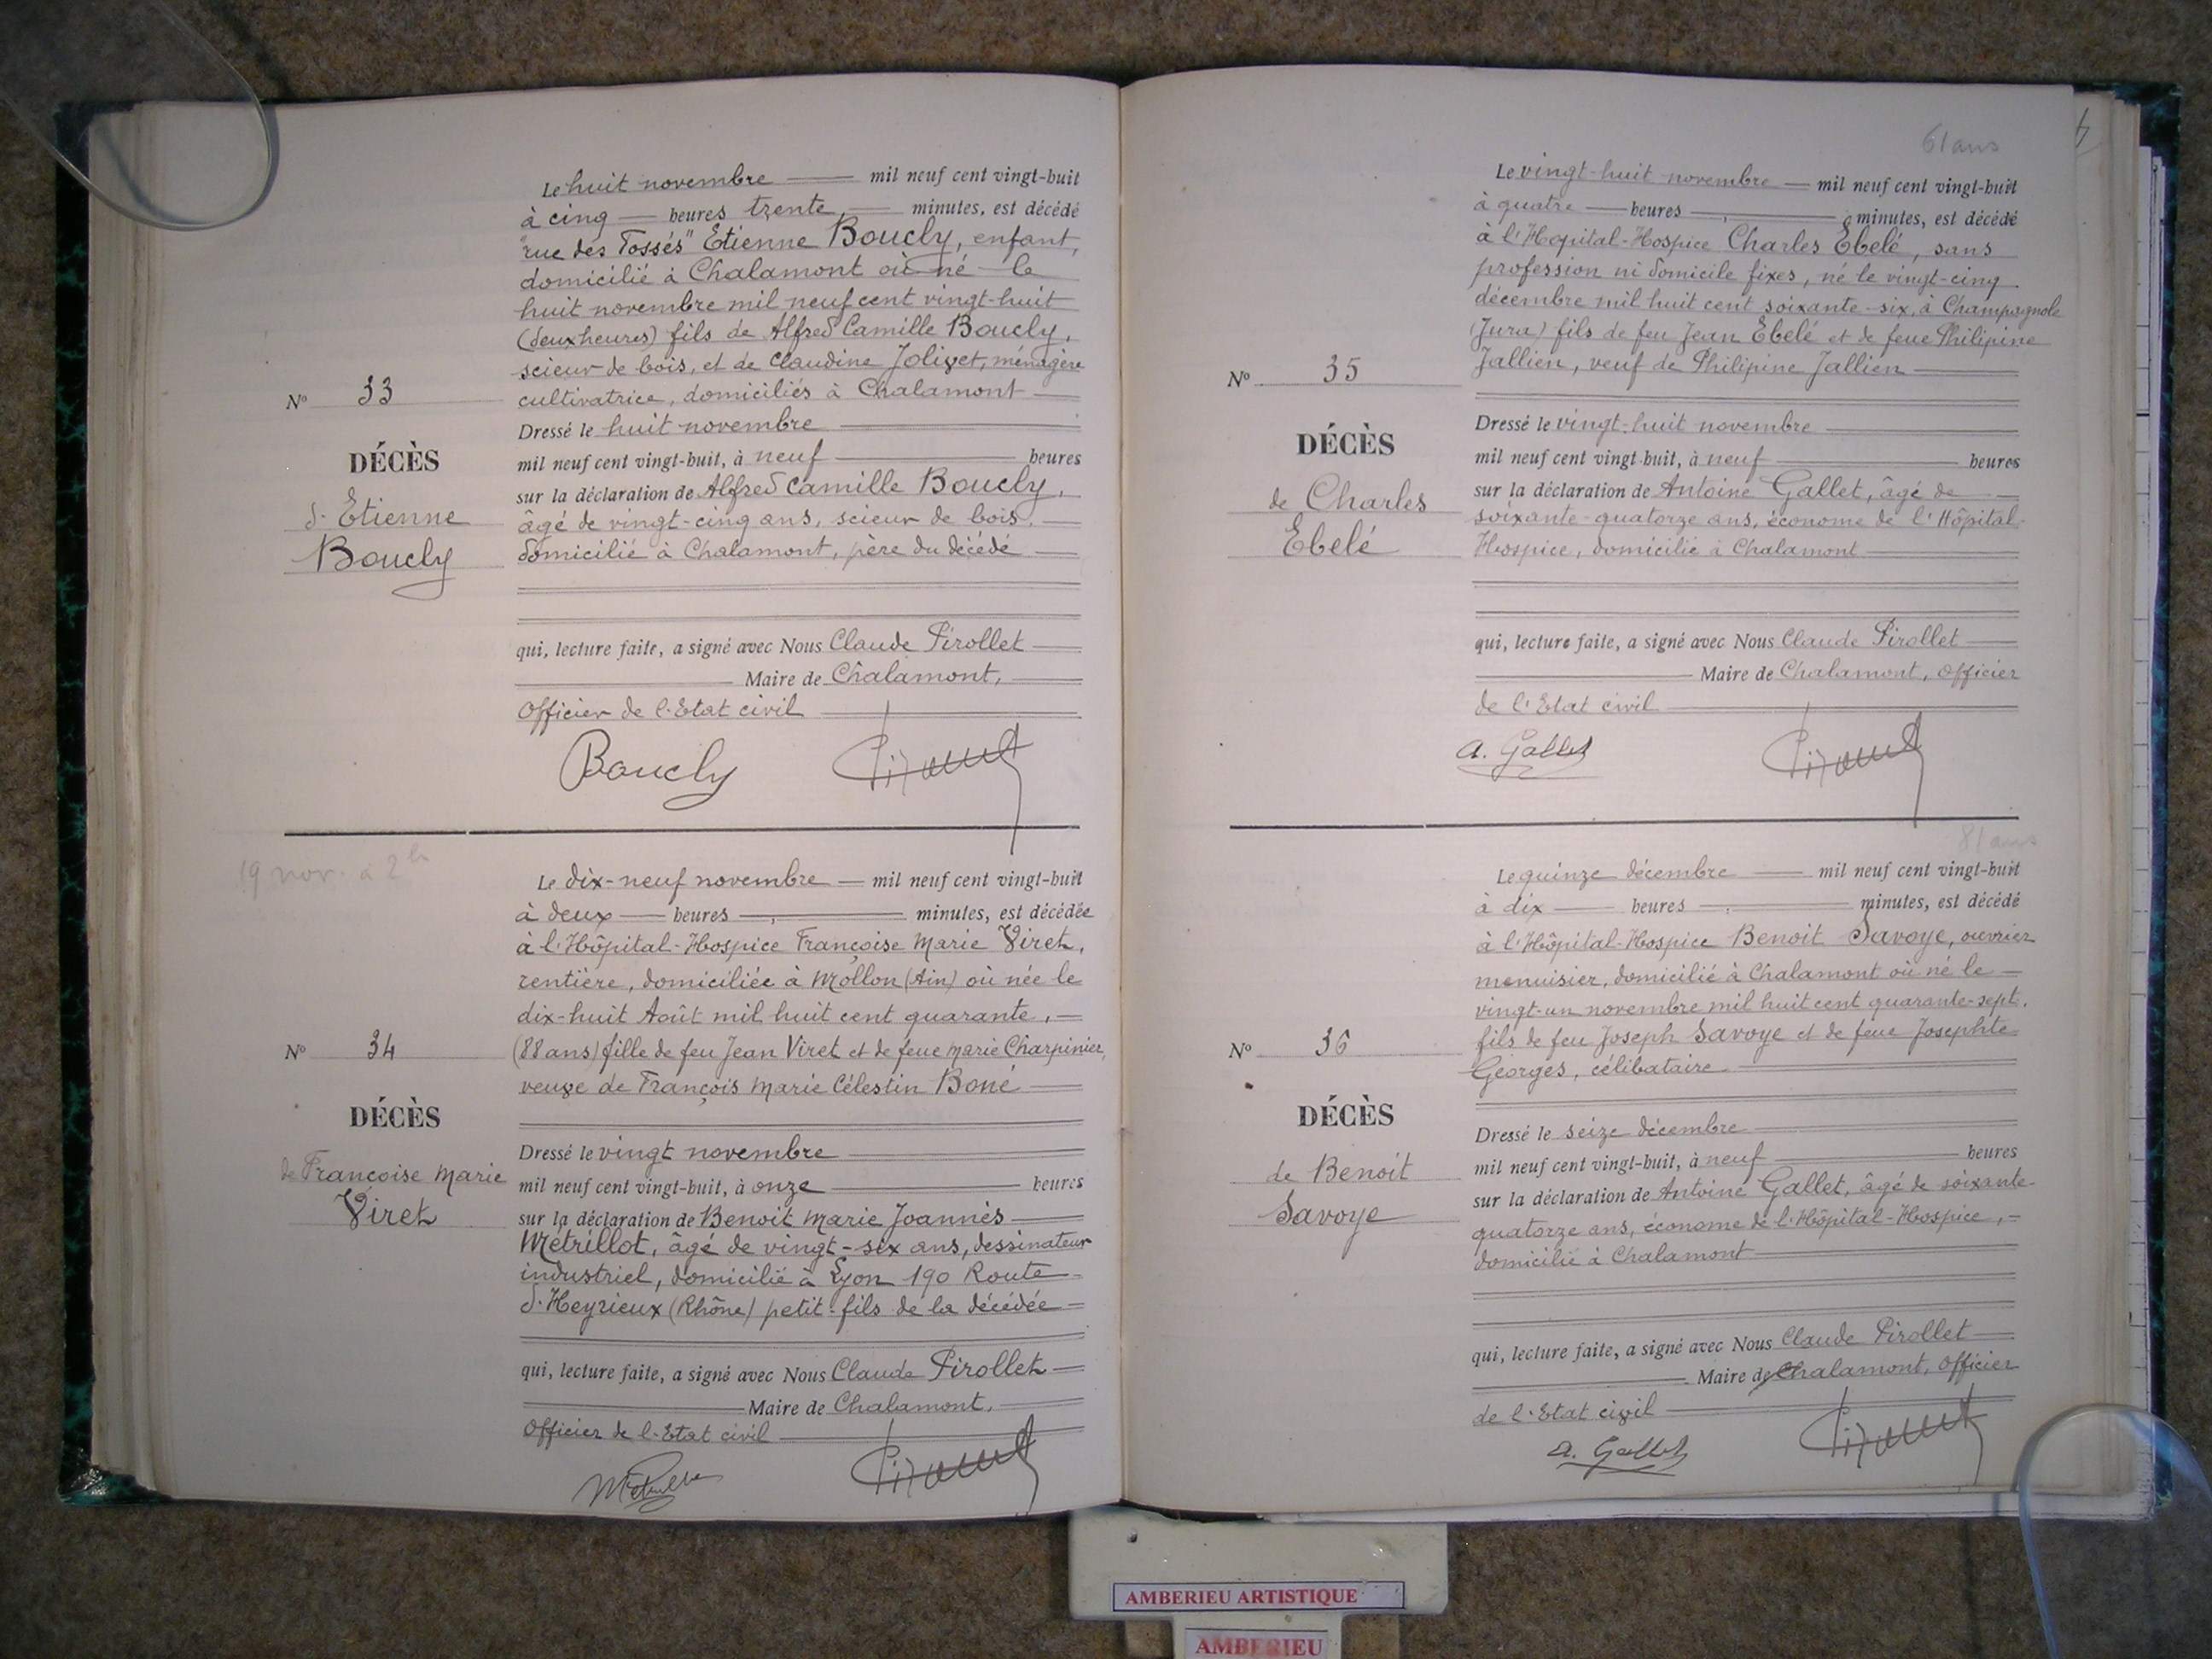 Le huit novembre mil neuf cent vingt-huit
à cinq heures trente minutes, est décédé
"rue des Fossés" Etienne Boucly, enfant,
domicilié à Chalamont où né le
huit novembre mil neuf cent vingt-huit
(deux heures) fils de Alfred Camille Boucly,
scieur de bois, et de Claudine Jolivet, ménagère
cultivatrice, domiciliés à Chalamont
Dressé le huit novembre
mil neuf cent vingt-huit, à neuf heures
sur la déclaration de Alfred Camille Boucly,
âgé de vingt-cinq ans, scieur de bois,
domicilié à Chalamont, père du décédé
qui, lecture faite, a signé avec Nous Claude Pirollet
Maire de Chalamont,
Officier de l'Etat civil
Boucly
N° 33
DÉCÈS
d'Etienne
Boucly
19 nov. à 2h
Le dix-neuf novembre mil neuf cent vingt-huit
à deux heures minutes, est décédée
à l'Hôpital-Hospice Françoise Marie Viret,
rentière, domiciliée à Mollon (Ain) où née le
dix-huit Août mil huit cent quarante,
(88 ans) fille de feu Jean Viret et de feue Marie Charpinier,
veuve de François Marie Célestin Boné
Dressé le vingt novembre
mil neuf cent vingt-huit, à onze heures
sur la déclaration de Benoit Marie Joannès
Métrillot, âgé de vingt-six ans, dessinateur
industriel, domicilié à Lyon 190 Route
d'Heyrieux (Rhône) petit-fils de la décédée
qui, lecture faite, a signé avec Nous Claude Pirollet
Maire de Chalamont,
Officier de l'Etat civil
N° 34
DÉCÈS
de Françoise Marie
Viret
61 ans
Le vingt-huit novembre mil neuf cent vingt-huit
à quatre heures minutes, est décédé
à l'Hopital-Hospice Charles Ebelé, sans
profession ni domicile fixes, né le vingt-cinq
décembre mil huit cent soixante-six, à Champagnole
(Jura) fils de feu Jean Ebelé et de feue Philipine
Jallien, veuf de Philipine Jallien
Dressé le vingt-huit novembre
mil neuf cent vingt-huit, à neuf heures
sur la déclaration de Antoine Gallet, âgé de
soixante-quatorze ans, économe de l'Hôpital
Hospice, domicilié à Chalamont
qui, lecture faite, a signé avec Nous Claude Pirollet
Maire de Chalamont, Officier
de l'Etat civil
A. Gallet
N° 35
DÉCÈS
de Charles
Ebelé
81 ans
Le quinze décembre mil neuf cent vingt-huit
à dix heures minutes, est décédé
à l'Hôpital-Hospice Benoit Savoye, ouvrier
menuisier, domicilié à Chalamont où né le
vingt-un novembre mil huit cent quarante-sept,
fils de feu Joseph Savoye et de feue Josephte
Georges, célibataire
Dressé le seize décembre
mil neuf cent vingt-huit, à neuf heures
sur la déclaration de Antoine Gallet, âgé de soixante
quatorze ans, économe de l'Hôpital-Hospice,
domicilié à Chalamont
qui, lecture faite, a signé avec Nous Claude Pirollet
Maire de Chalamont, Officier
de l'Etat civil
A. Gallet
N° 36
DÉCÈS
de Benoit
Savoye
AMBERIEU ARTISTIQUE
AMBERIEU